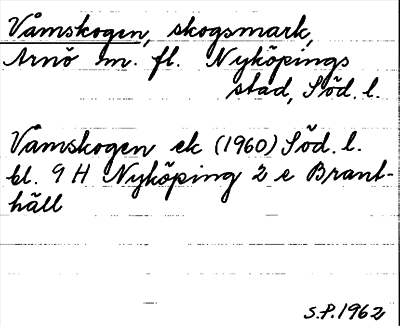 Våmskogen, skogsmark,
Arnö m. fl. Nyköpings
stad, Söd. l.
Vamskogen ek (1960) Söd. l.
bl. 9 H Nyköping 2 e Brant-
häll
S.P. 1962